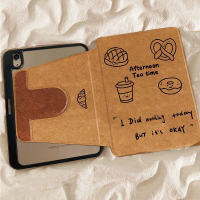 Afternoon
Tea time
" I Did nothing today
BUT it's OKAY "